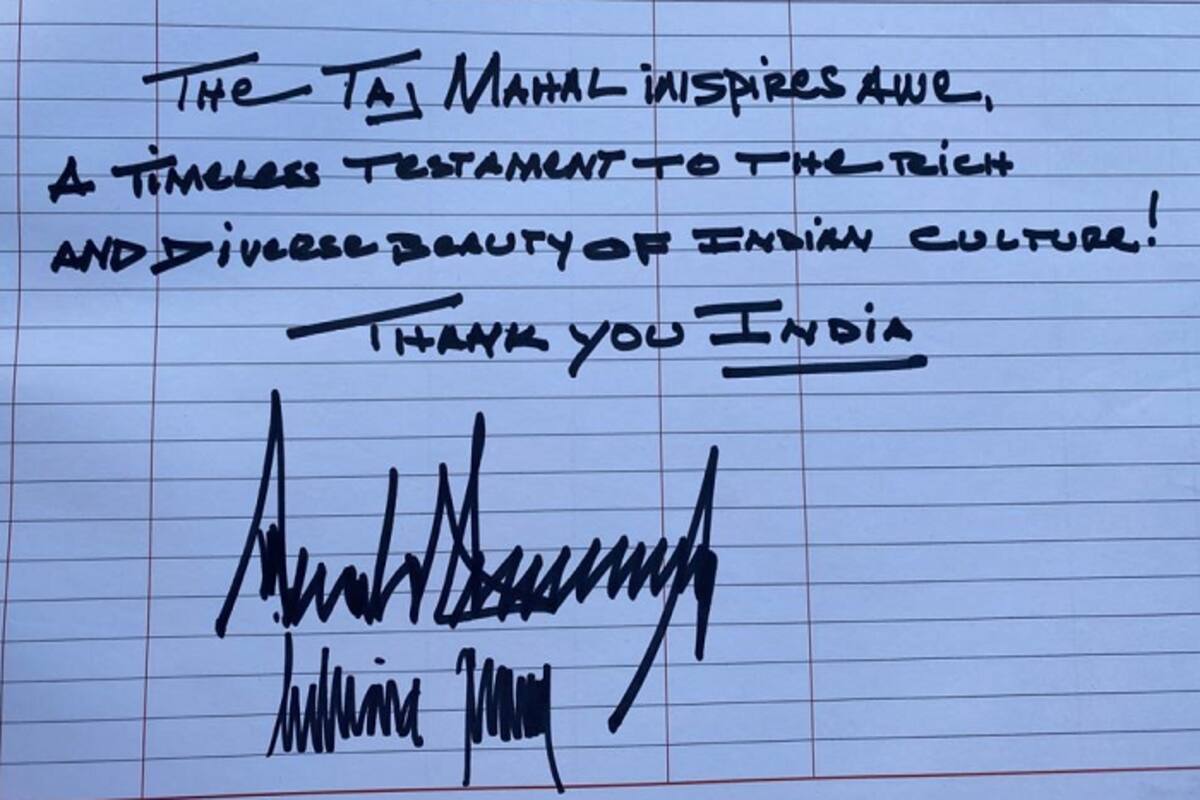 THE TAJ MAHAL INSPIRES AWE,
A TIMELESS TESTAMENT TO THE RICH
AND DIVERSE BEAUTY OF INDIAN CULTURE!
THANK YOU INDIA